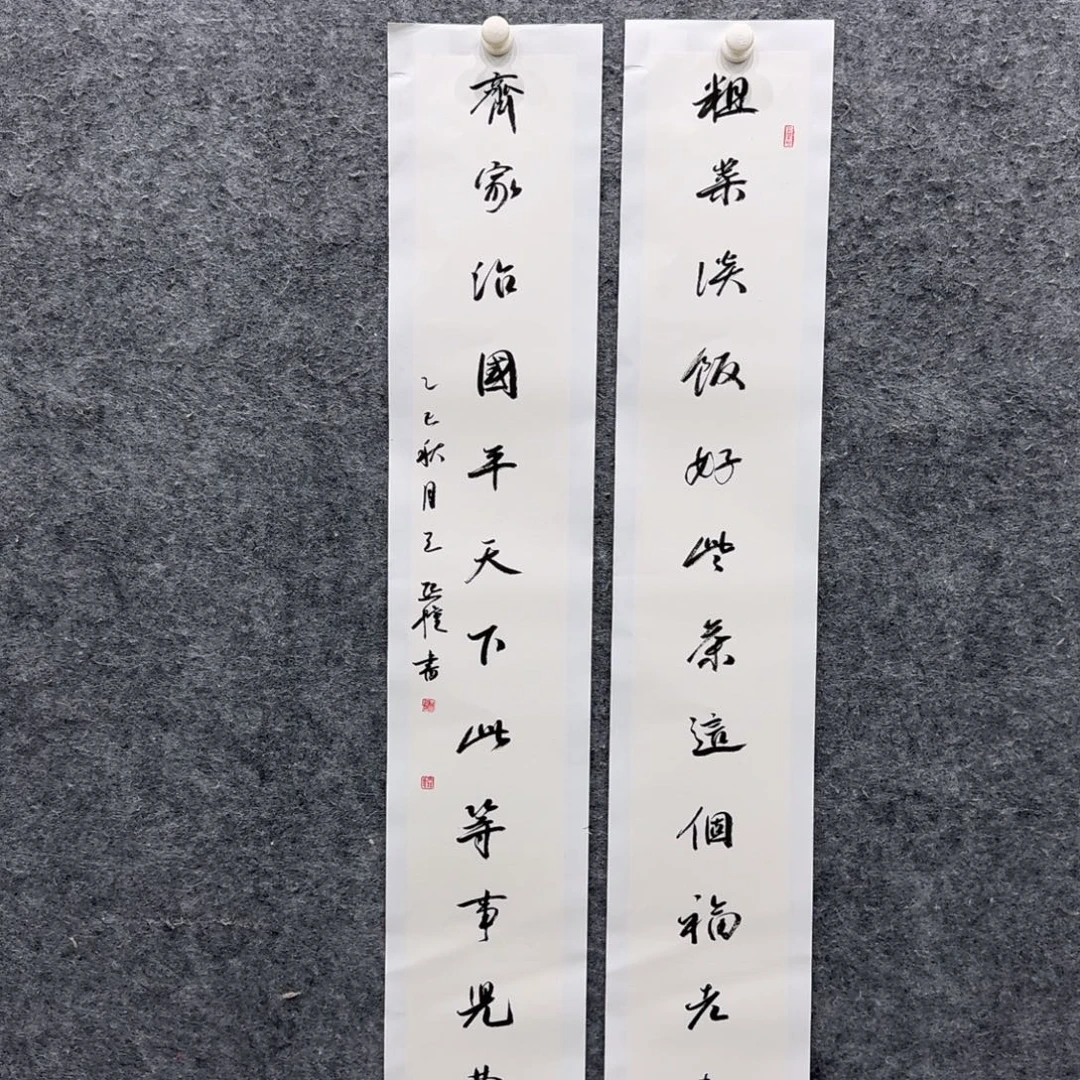 粗菜淡飯好些茶這個福老
齊家治國平天下此等事兒
乙巳秋月王亞書